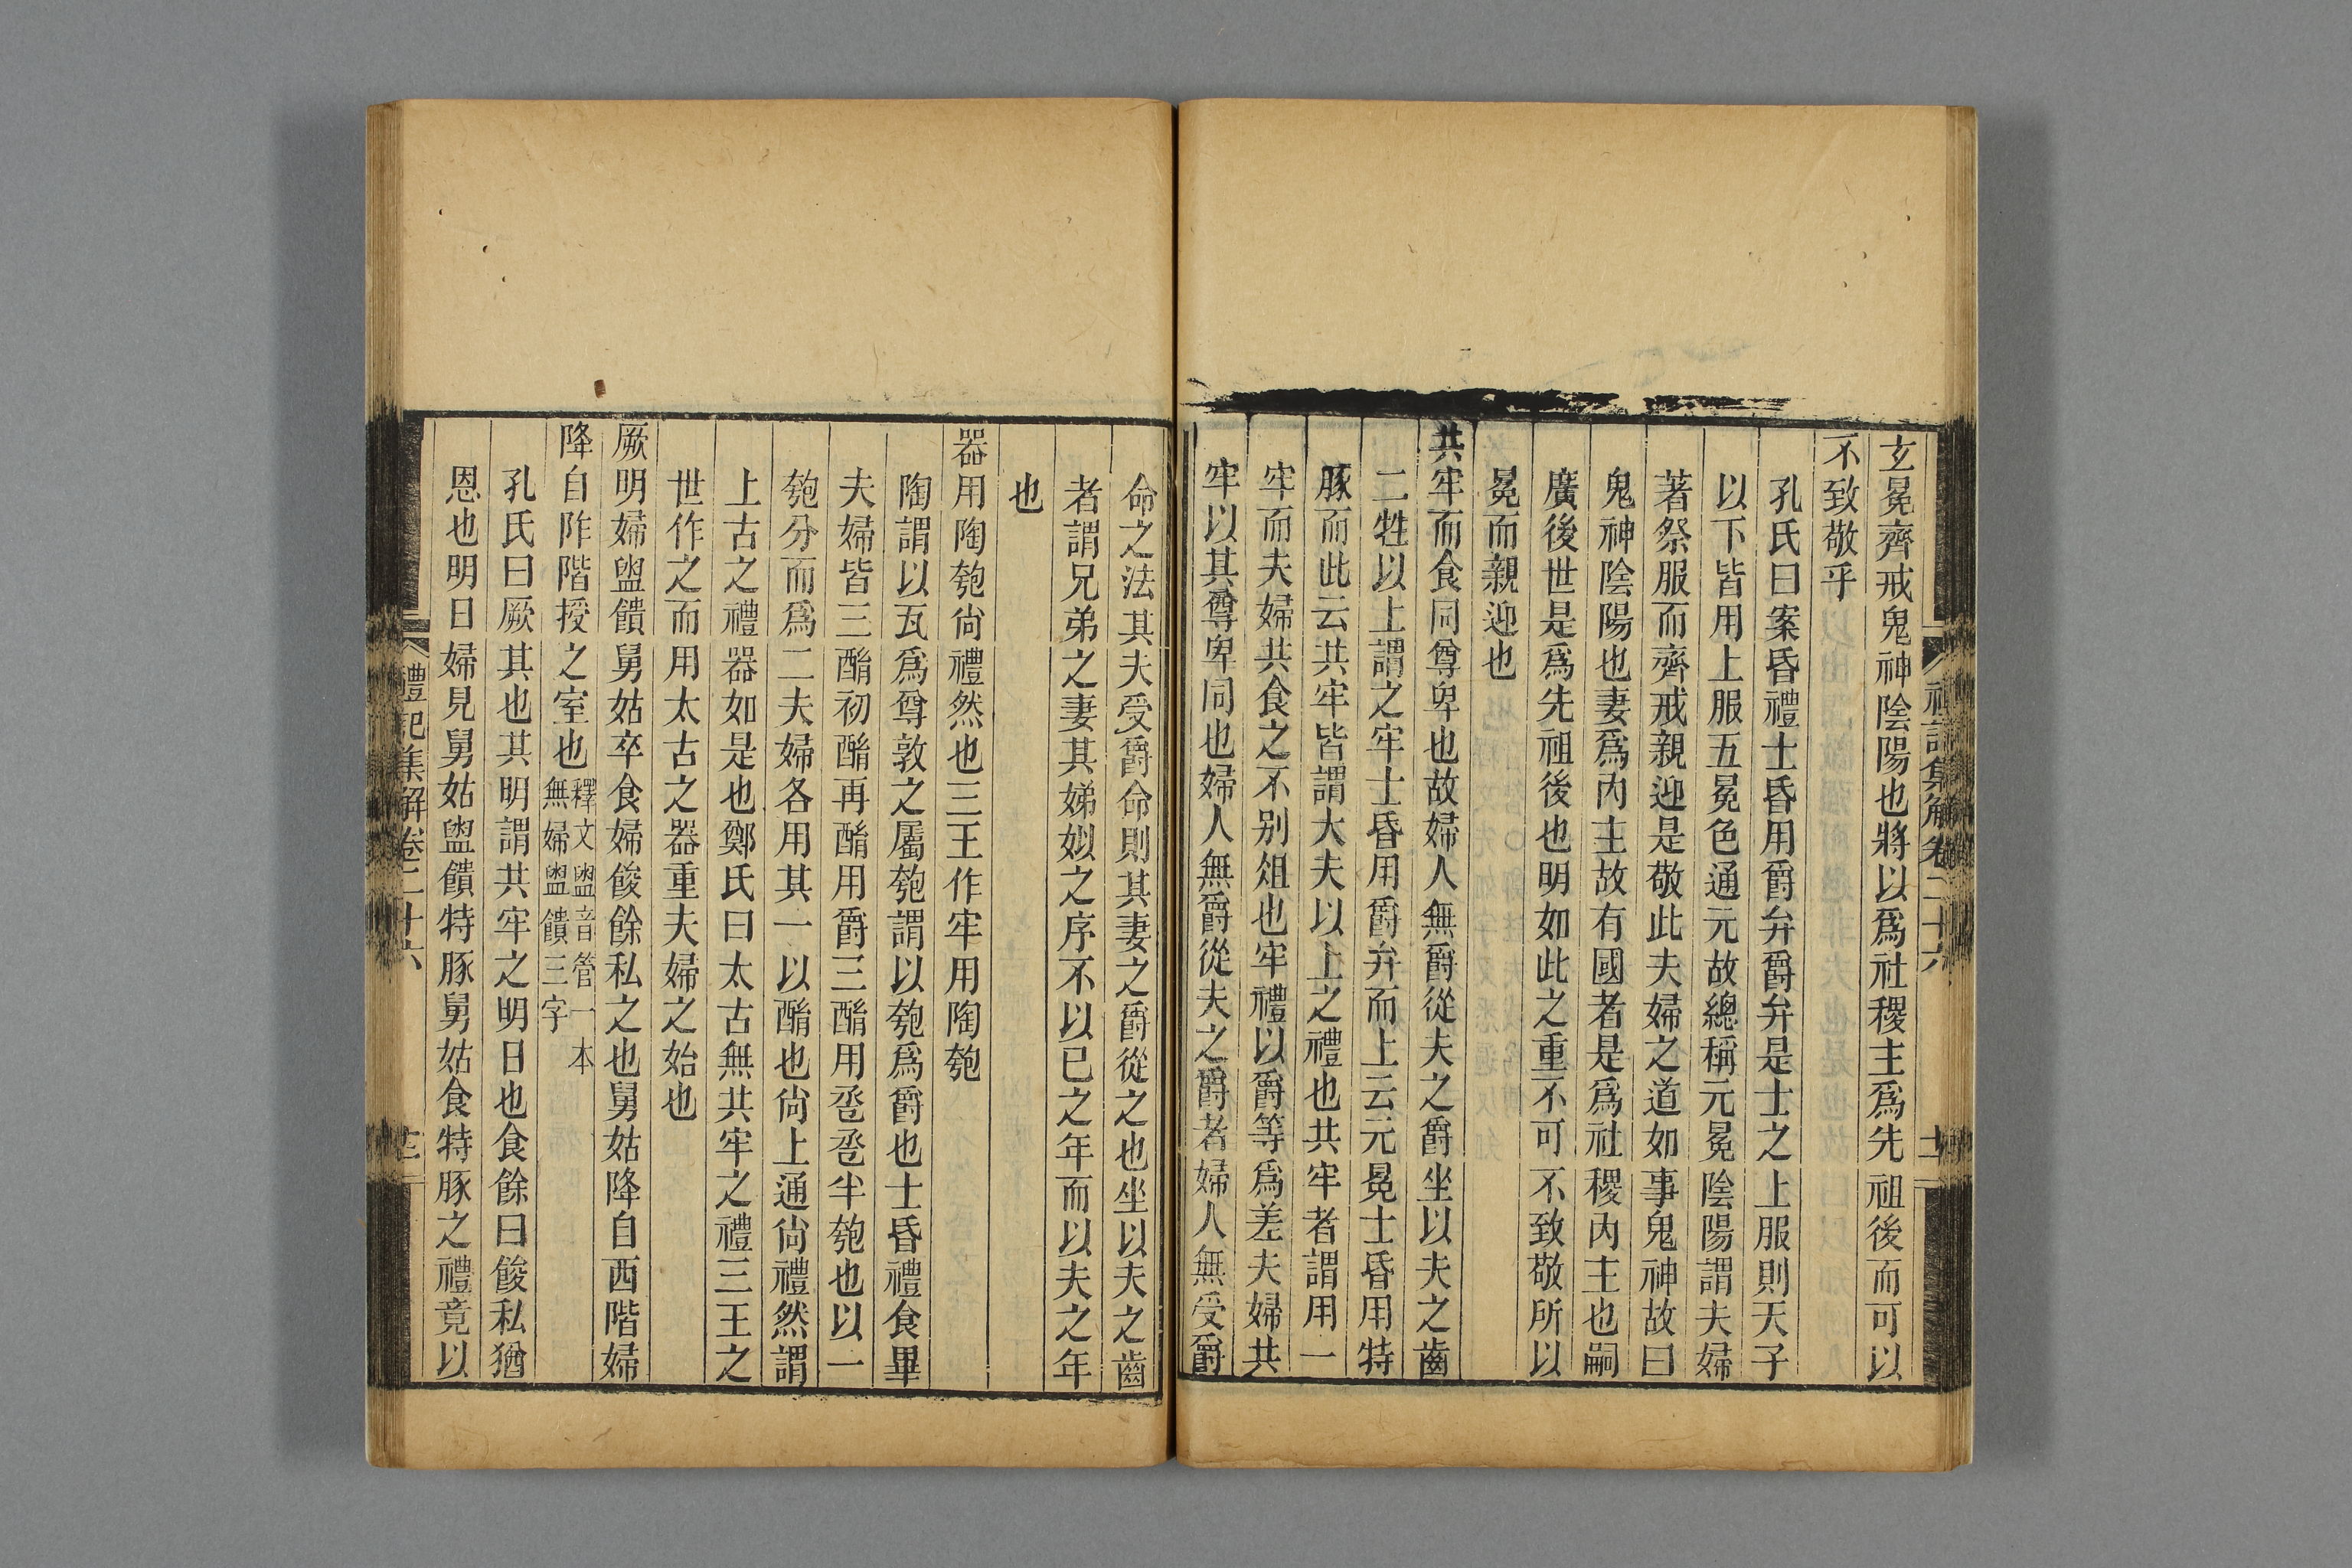 玄冕齊戒鬼神陰陽也將以爲社稷主爲先祖後而可以
不致敬乎
孔氏曰案昏禮士昏用爵弁爵弁是士之上服則天子
以下皆用上服五冕色通元故總稱元冕陰陽謂夫婦
著祭服而齊戒親迎是敬此夫婦之道如事鬼神故曰
鬼神陰陽也妻爲內主故有國者是爲社稷內主也嗣
廣後世是爲先祖後也明如此之重不可不致敬所以
冕而親迎也
共牢而食同尊卑也故婦人無爵從夫之爵坐以夫之齒
二牲以上謂之牢士昏用爵弁而上云元冕士昏用特
豚而此云共牢皆謂大夫以上之禮也共牢者謂用一
牢而夫婦共食之不别俎也牢禮以爵等爲差夫婦共
牢以其尊卑同也婦人無爵從夫之爵者婦人無受爵
命之法其夫受爵命則其妻之爵從之也坐以夫之齒
者謂兄弟之妻其娣姒之序不以已之年而以夫之年
也
器用陶匏尙禮然也三王作牢用陶匏
陶謂以瓦爲尊敦之屬匏謂以匏爲爵也士昏禮食畢
夫婦皆三酳初酳再酳用爵三酳用卺卺半匏也以一
匏分而爲二夫婦各用其一以酳也尙上通尙禮然謂
上古之禮器如是也鄭氏曰太古無共牢之禮三王之
世作之而用太古之器重夫婦之始也
厥明婦盥饋舅姑卒食婦餕餘私之也舅姑降自西階婦
降自阼階授之室也釋文盥音管一本無婦盥饋三字
孔氏曰厥其也其明謂共牢之明日也食餘曰餕私猶
恩也明日婦見舅姑盥饋特豚舅姑食特豚之禮竟以
禮記集解卷二十六
十二
禮記集解卷二十六
十一